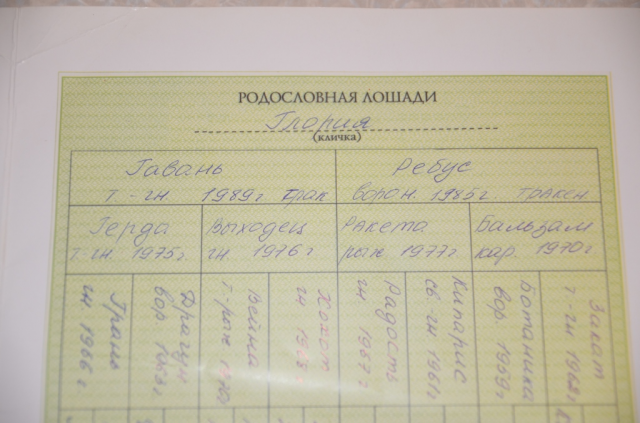 РОДОСЛОВНАЯ ЛОШАДИ
Глория
(КЛИЧКА)
Гавань
т-гн. 1989г трак
Ребус
ворон. 1985г тракен
Герда
т-гн. 1975г.
Выходец
гн 1976г
Ракета
рыж 1977г
Бальзам
кар. 1970г
Граль
гн. 1966г
Драгун
вор
Вейна
т-рыж
Хохот
гн
Радость
гн
Кипарис
св-гн 1961г
Ботаника
вор.
Закат
т-гн